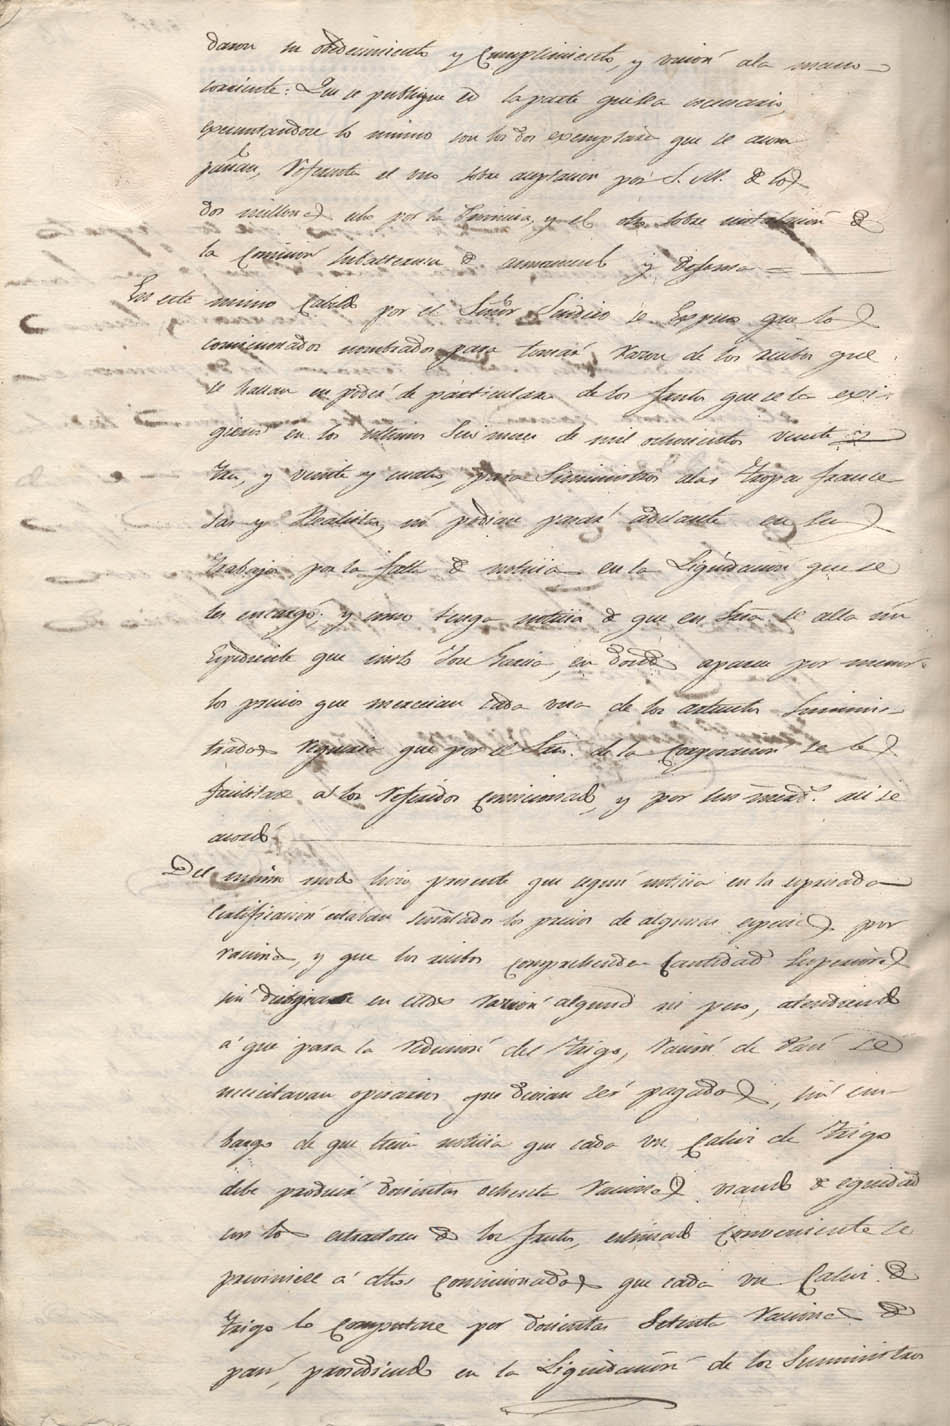 daron su obedecimiento y Cumplimiento, y unión ala mano
corriente: Que se publique en la parte que sea necesario,
executandose lo mismo con los dos exemplares que se acom
pañan, referente el uno sobre aceptacion por S. M. de los
dos millones por la Provincia, y el otro sobre instalación de
la Comisión Subalterna de armamento y defensa =
En este mismo Cabildo por el Señor Sindico se Expuso que los
comisionados nombrados para tomar razon de los recibos que
se hallan en poder de particulares de los frutos que se les exi-
gieron en los ultimos Seis meses de mil ochocientos veinte y
tres, y veinte y cuatro, para Suministros alas Tropas france
sas y Realistas, no podian pasar adelante en sus
trabajos por la falta de noticia en la Liquidación que se
les encargó; y como tenga noticia de que en Sria se alla un
Expediente que instó José Garcia, en donde aparece por menor
los precios que merecian cada una de los articulos Suminis-
trados requeria que por el Srio. de la Corporacion se les
facilitase a los referidos Comisionados, y por sus mrds. asi se
acordó
Del mismo modo hizo presente que segun noticia en la expresada
Certificación estaban señalados los precios de algunas especies por
raciones, y que los recibos comprehenden Cantidades Superiores
sin designarse en ellos razón alguna ni peso, atendiendo
á que para la reducción del Trigo, ración de Pan se
necesitavan operarios que devian ser pagados, sin em
bargo de que tenia noticia que cada un Calvi de Trigo
debe producir doscientas ochenta raciones usando de equidad
con los estradores de los frutos, estimado Conveniente se
previniese á dhos Comisionados que cada un Calvi de
Trigo lo Computase por doscientas Setenta raciones de
pan, procediendo en la Liquidación de los Suministros